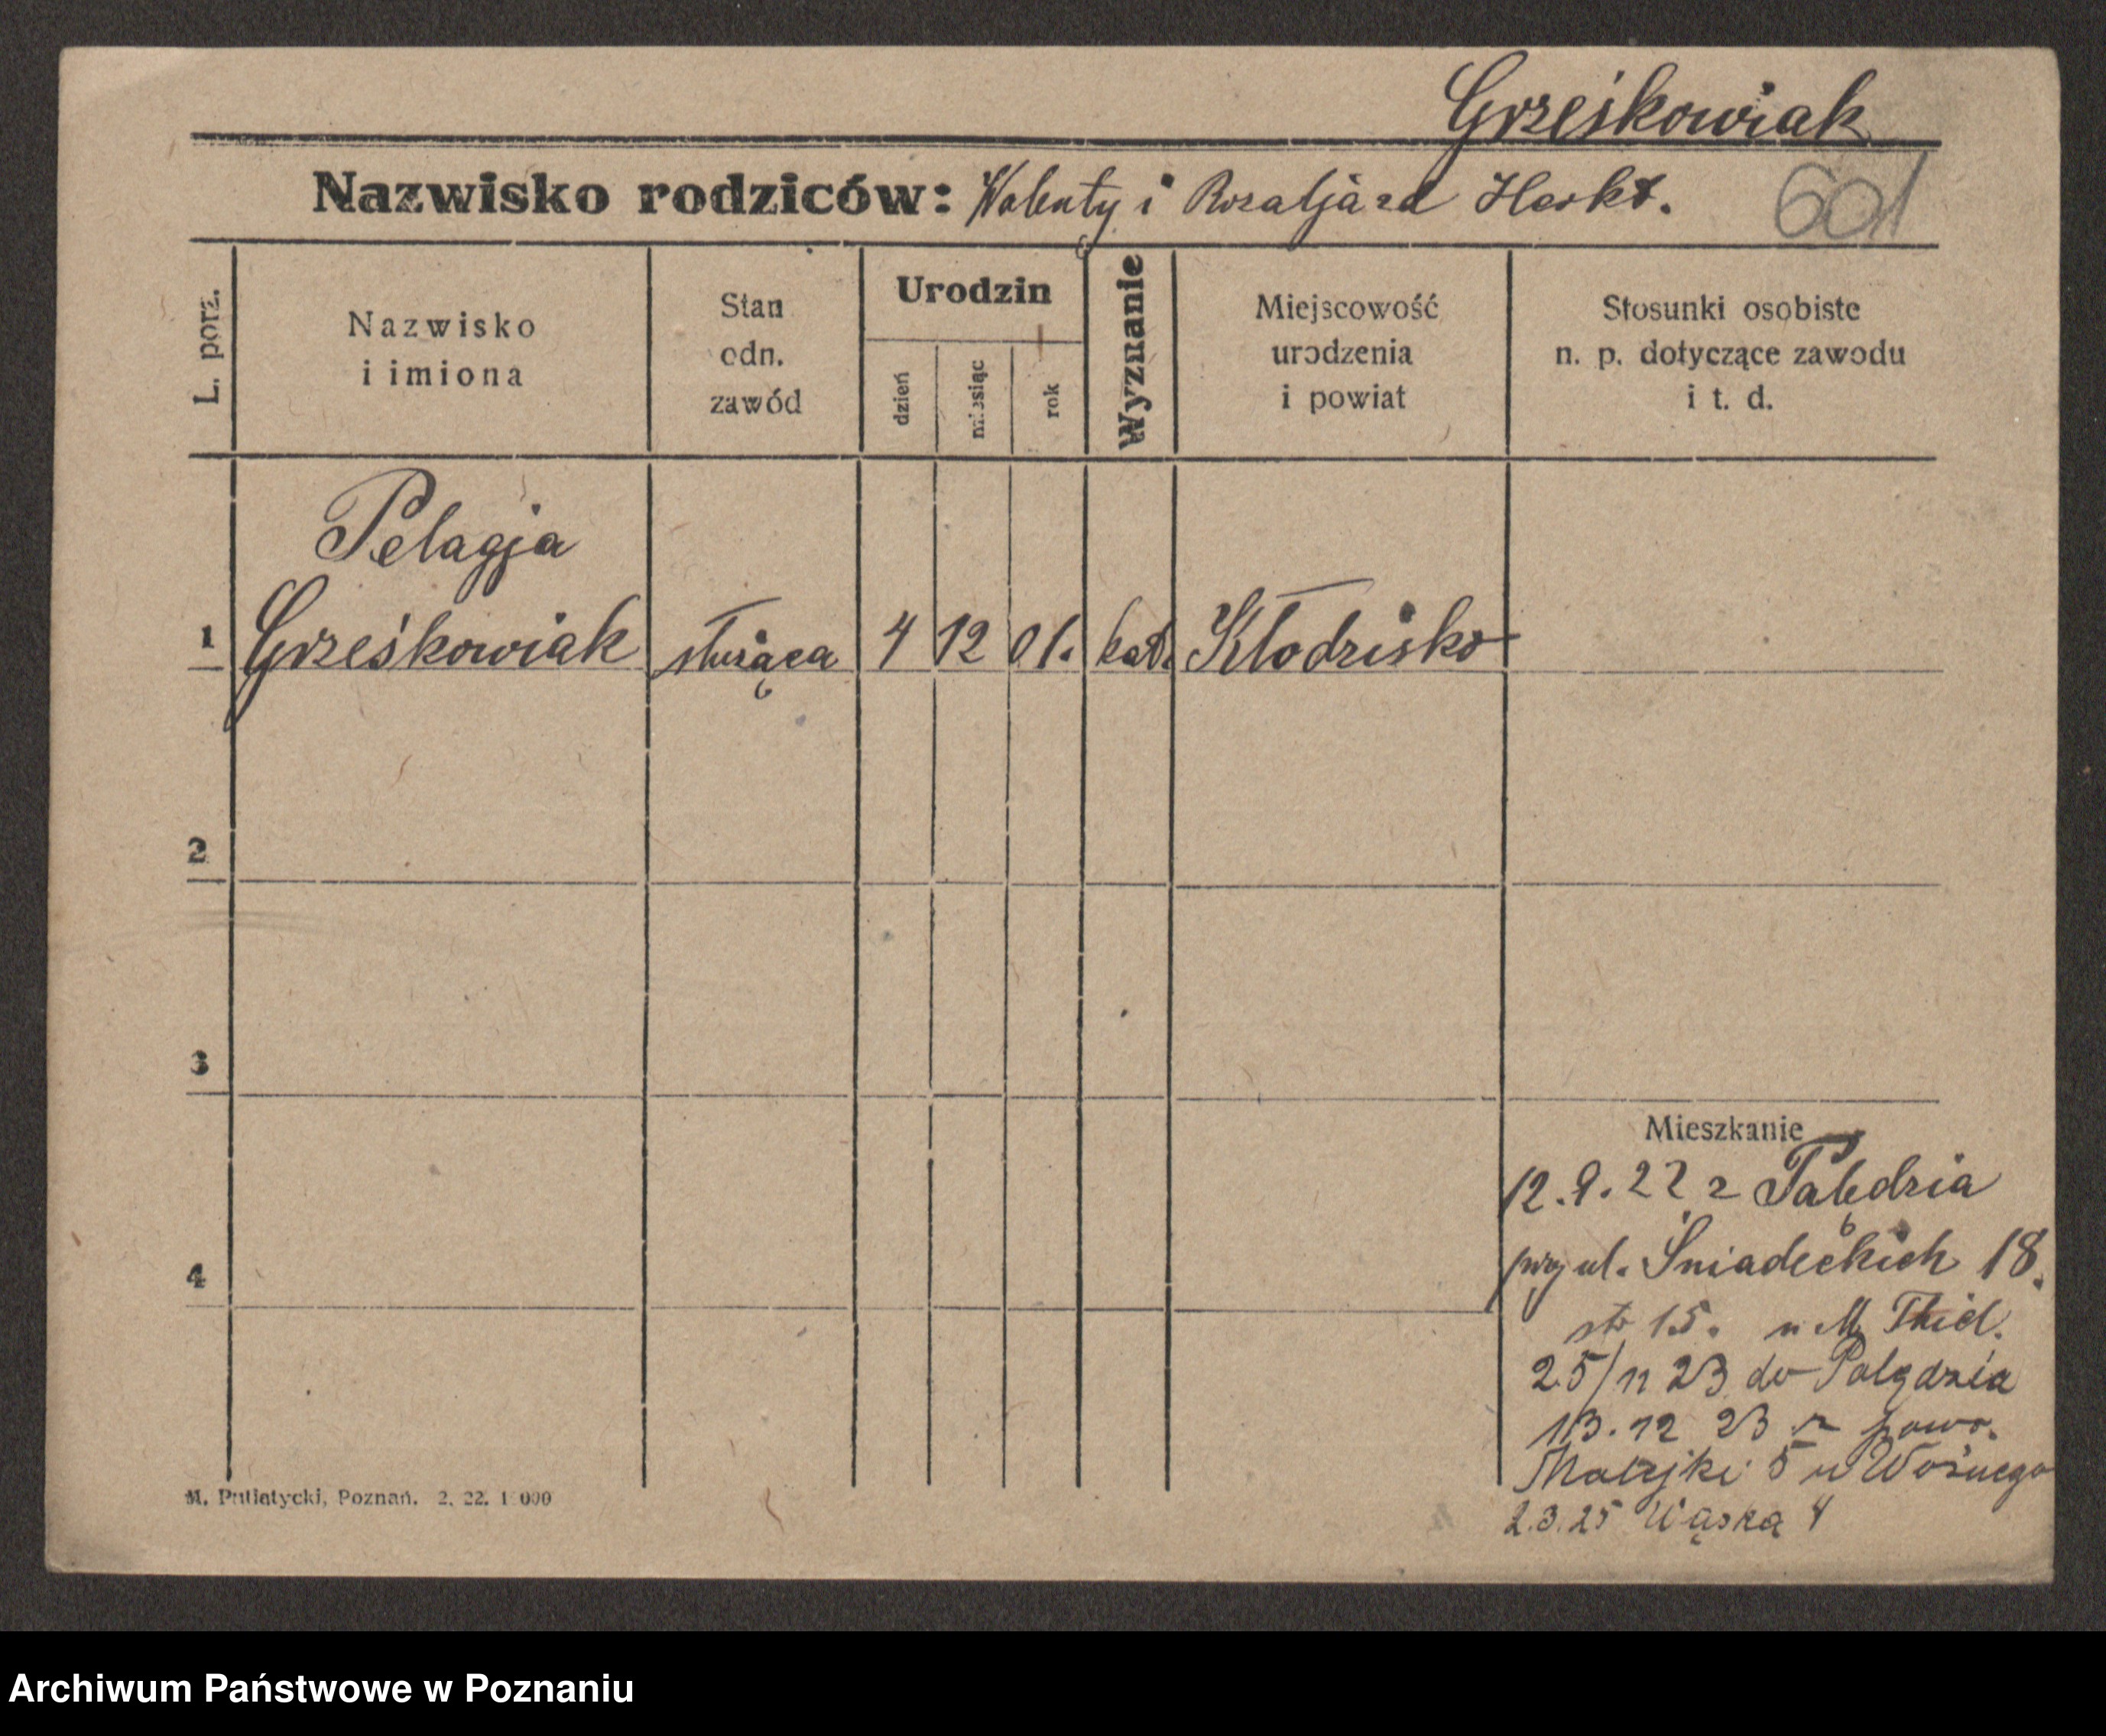 Grześkowiak
Nazwisko rodziców: Walenty i Rozalja zd 601
L. porz.
Nazwisko
i imiona
Stan
odn.
zawód
Urodzin
dzień
miesiąc
rok
Wyznanie
Miejscowość
urodzenia
i powiat
Stosunki osobiste
n. p. dotyczące zawodu
i t. d.
Pelagja
1 Grześkowiak służąca 4 12 01. kat. Kłodzisko
2
3
4
Mieszkanie
12.9.22 z Palędzia
przy ul. Śniadeckich 18.
str 15. u M. Thiel.
25/11 23 do Palędzia
13.12 23 z powr.
Matejki 5 u Woźnego
2.3.25 Wąska 4
M. Putiatycki, Poznań. 2. 22. 1 000
Archiwum Państwowe w Poznaniu